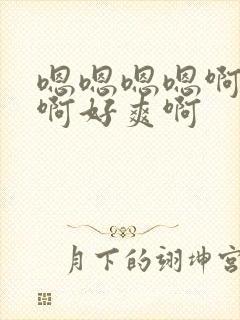 嗯嗯嗯嗯啊
啊好爽啊
月下的翊坤宫